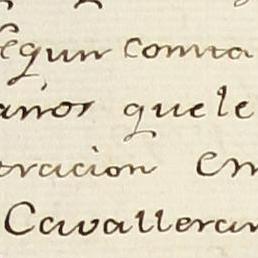 Segun consta
años que le
tracion en
Cavalleran